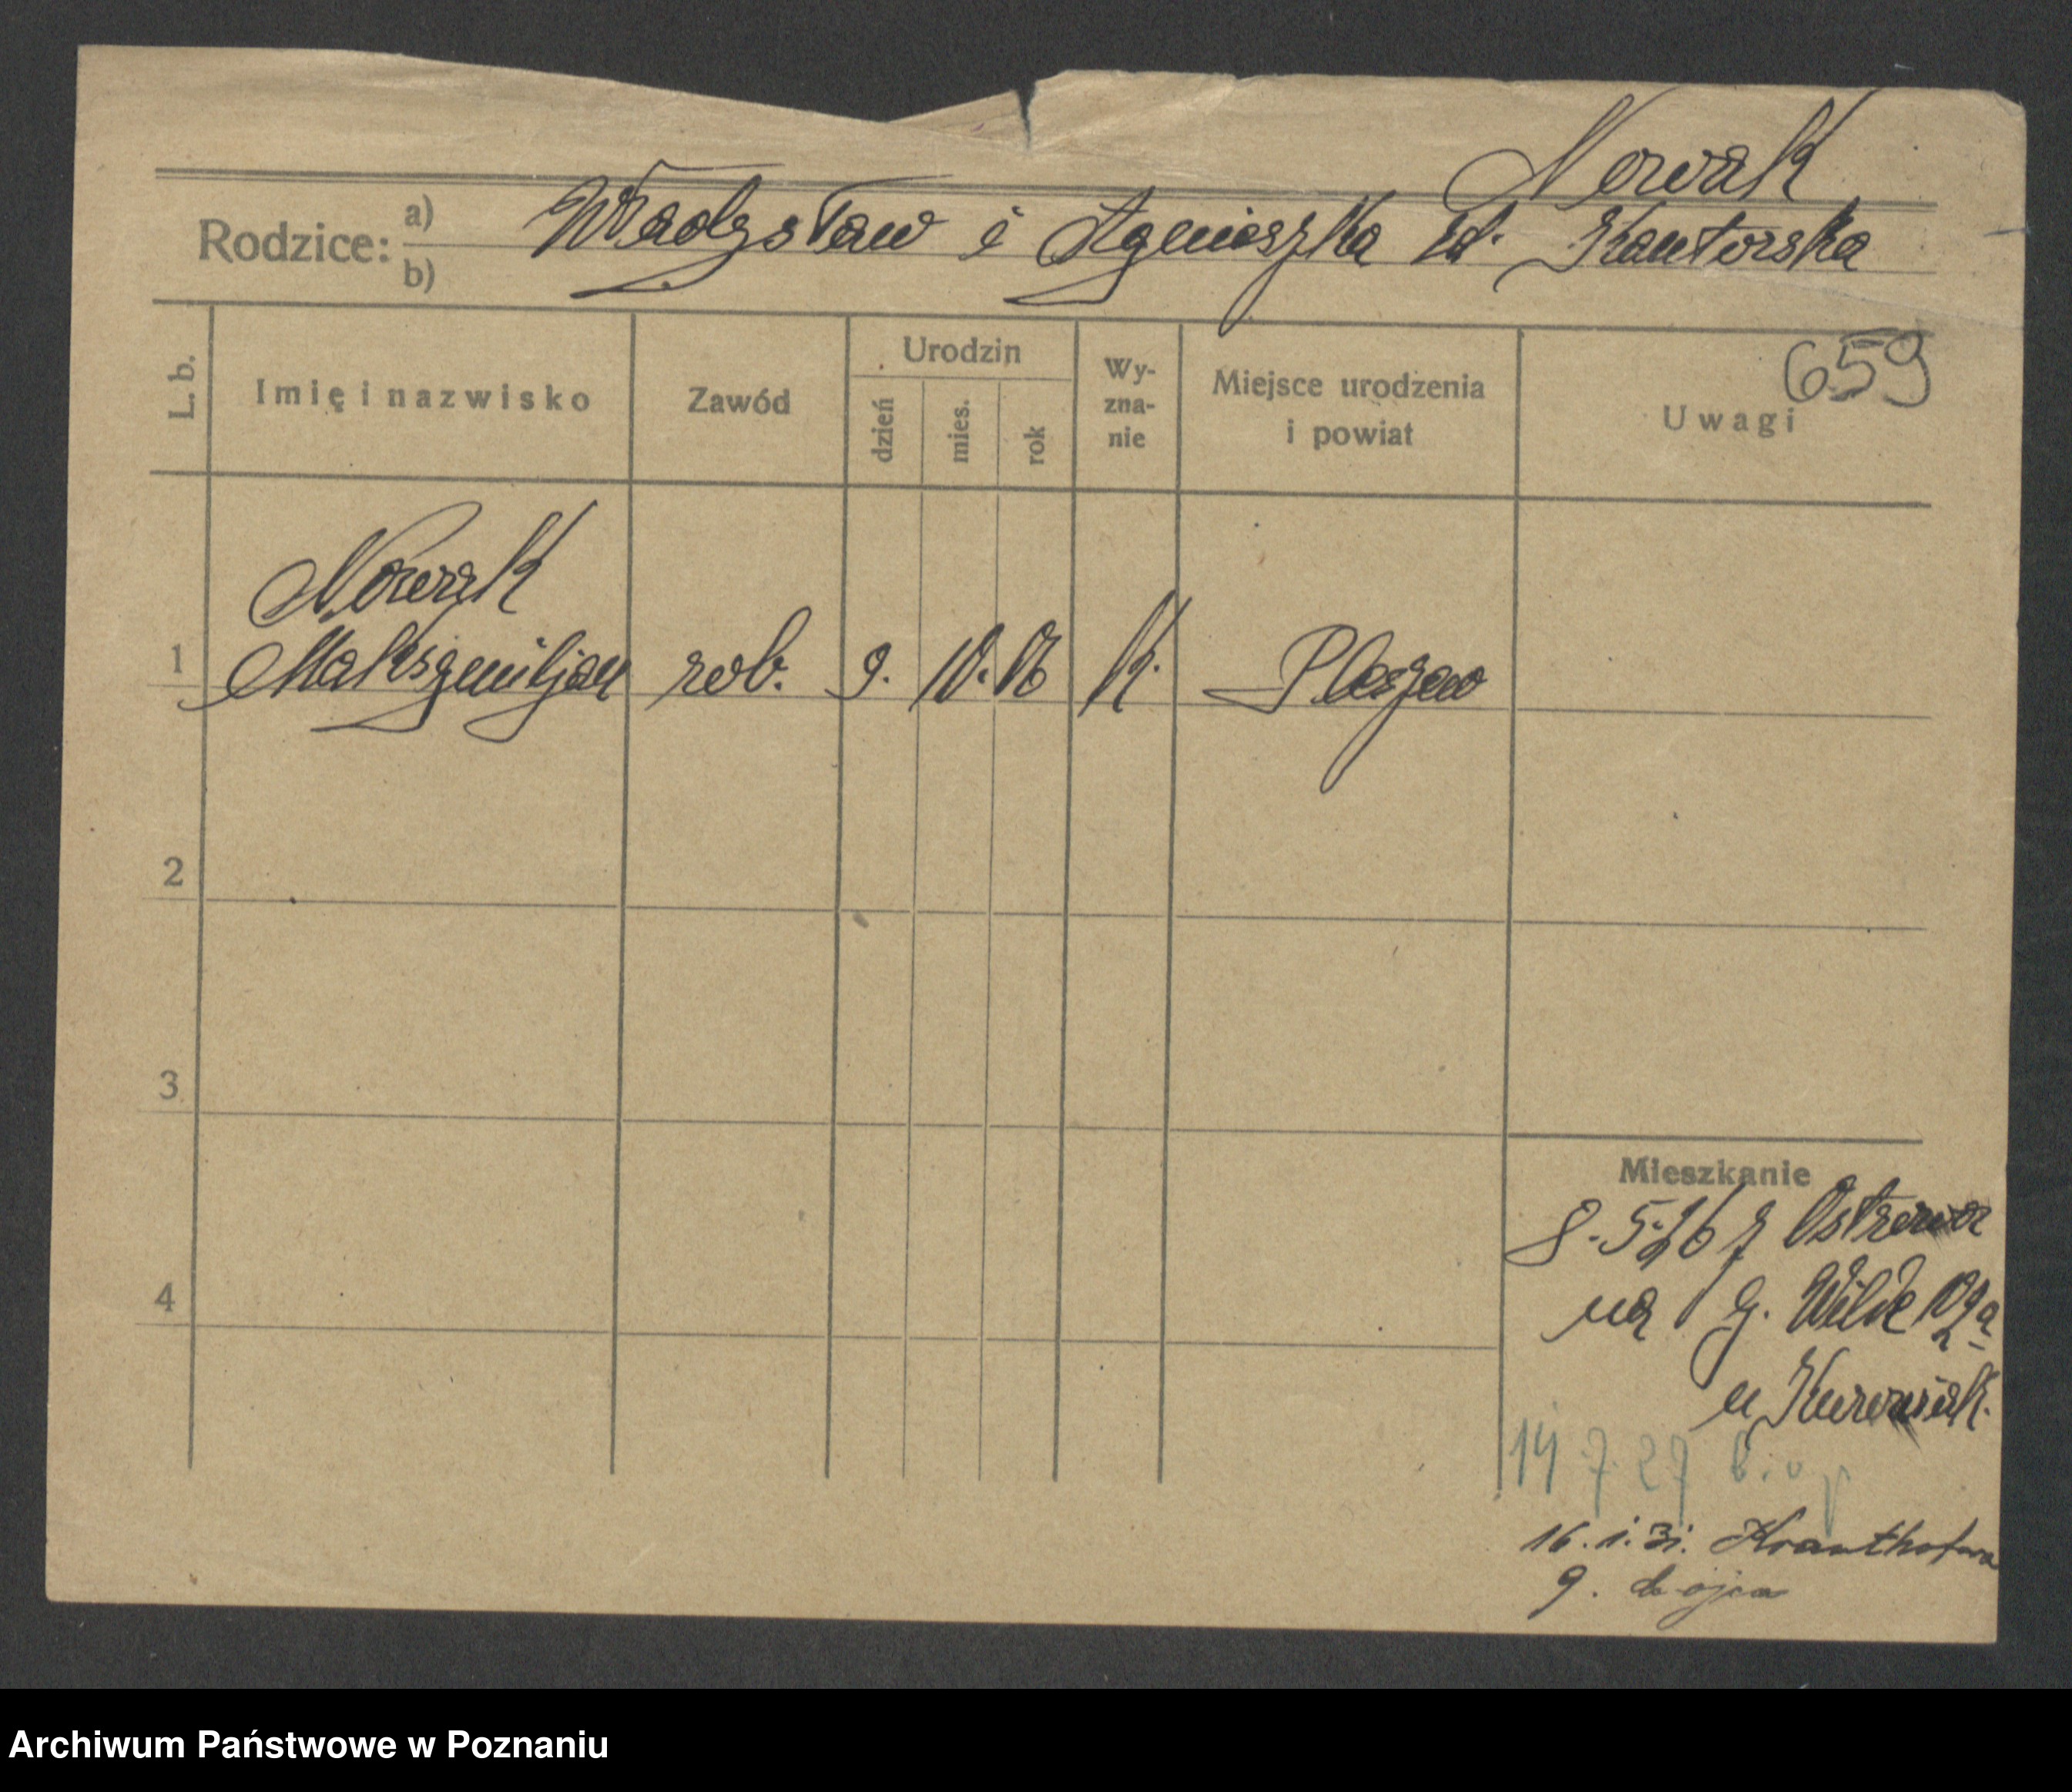 Nowak
Rodzice: a) Władysław i Agnieszka zd. Kantorska
b)
659
L. b. Imię i nazwisko Zawód Urodzin dzień mies. rok Wy-zna-nie Miejsce urodzenia i powiat Uwagi
Nowak
1 Maksymiljan rob. 9. 10. 06 K. Pleszew
2
3
4
Mieszkanie
8.5.26 z Ostrowa
na G. Wilde 102a
u
14 7.27
16.1.31.
9. do ojca
Archiwum Państwowe w Poznaniu